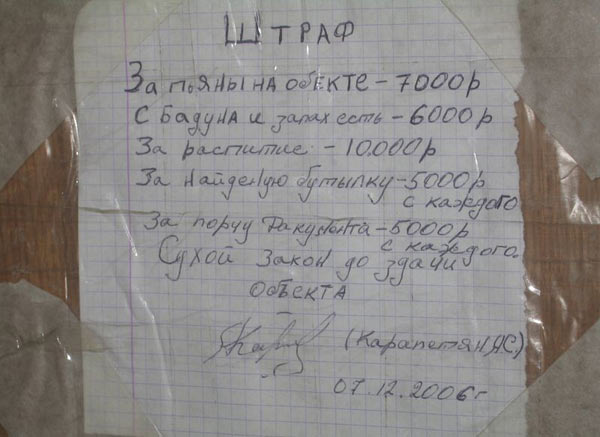 ШТРАФ
За пьяны на обекте - 7000р
С Бадуна и запах есть - 6000р
За распитие - 10.000р
За найденую бутылку - 5000р
с каждого
За порчу Факумента - 5000р
с каждого.
Сухой закон до здачи
объекта
(Карапетян А.С.)
07.12.2006г